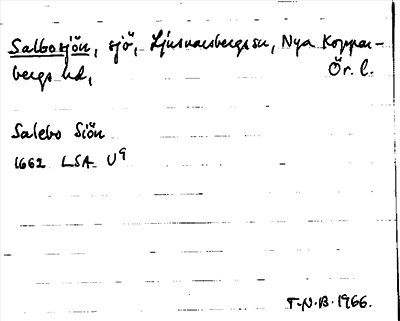 Salbosjön, sjö, Ljusnarsbergs sn, Nya Koppar-
bergs hd, Ör. l.
Salebo Siön
1662 LSA U9
T.N.B. 1966.